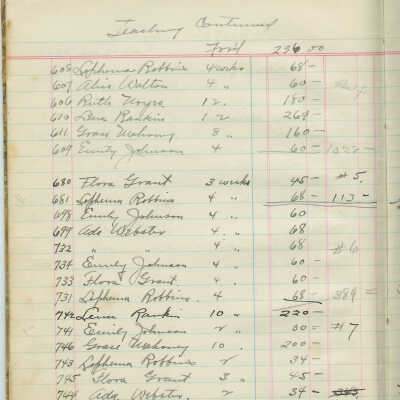 Teaching Continued
Ford 236 00
608 Sophema Robbins 4 weeks 68 -
607 Alice Walton 4 " 60 -
606 Ruth 12 . 180 -
610 Lena Rankin 12 264 -
611 Grace Mahony 8 " 160 -
609 Emily Johnson 4 60 -
680 Flora Grant 3 weeks 45 - #5
681 Sophema Robbins 4 " 68 - 113 -
698 Emily Johnson 4 " 60
699 Ada Webster 4 " 68
732 " " 4 " 68 #6
734 Emily Johnson 4 " 60 -
733 Flora Grant 4 " 60 -
731 Sophema Robbins . 4 68 - 384 =
742 Lena Rankin 10 " 220 -
741 Emily Johnson 2 " 30 = #7
746 Grace Mahony 10 . 200 -
743 Sophema Robbins 2 34 -
745 Flora Grant 3 " 45 -
744 Ada Webster . 2 34 -